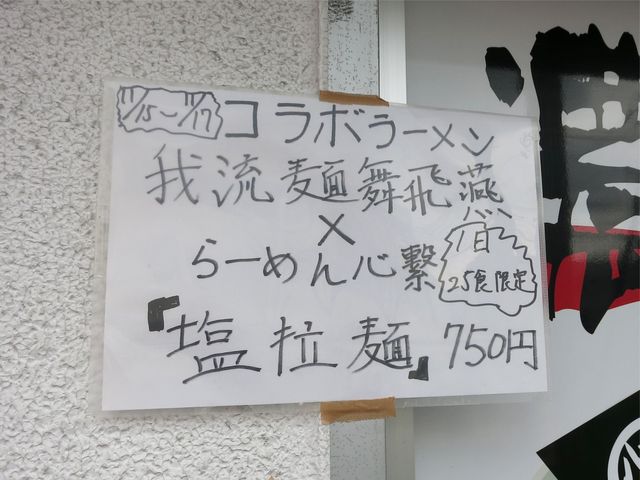 11/15〜11/17 コラボラーメン
我流麺舞飛燕
×
らーめん心繋
1日
25食限定
『塩拉麺』 750円